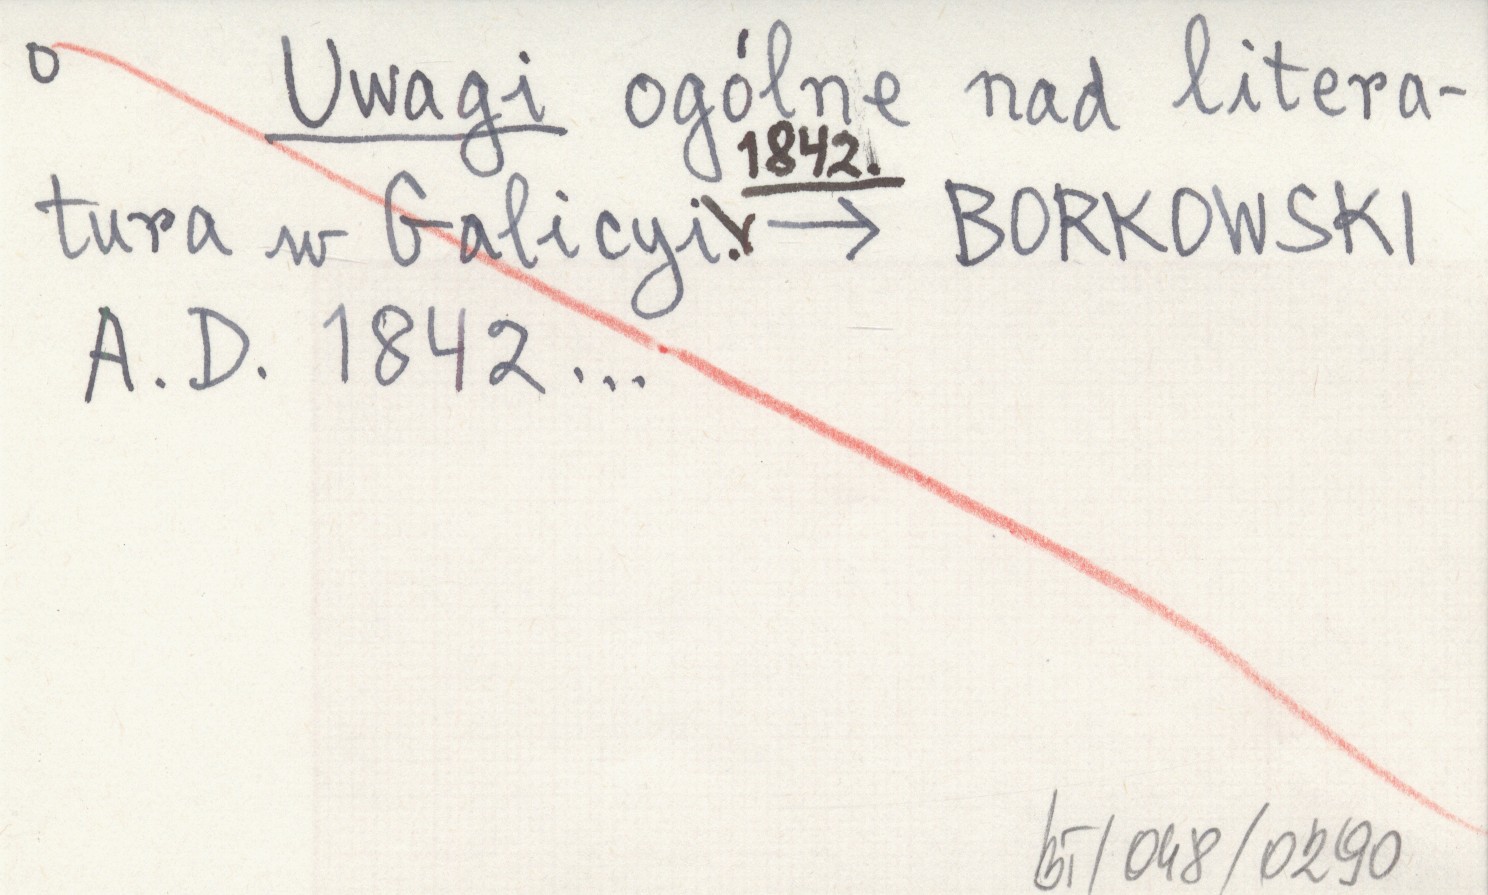 o Uwagi ogólne nad litera-
1842.
tura w Galicyi. → BORKOWSKI
A.D. 1842...
BI/048/0290